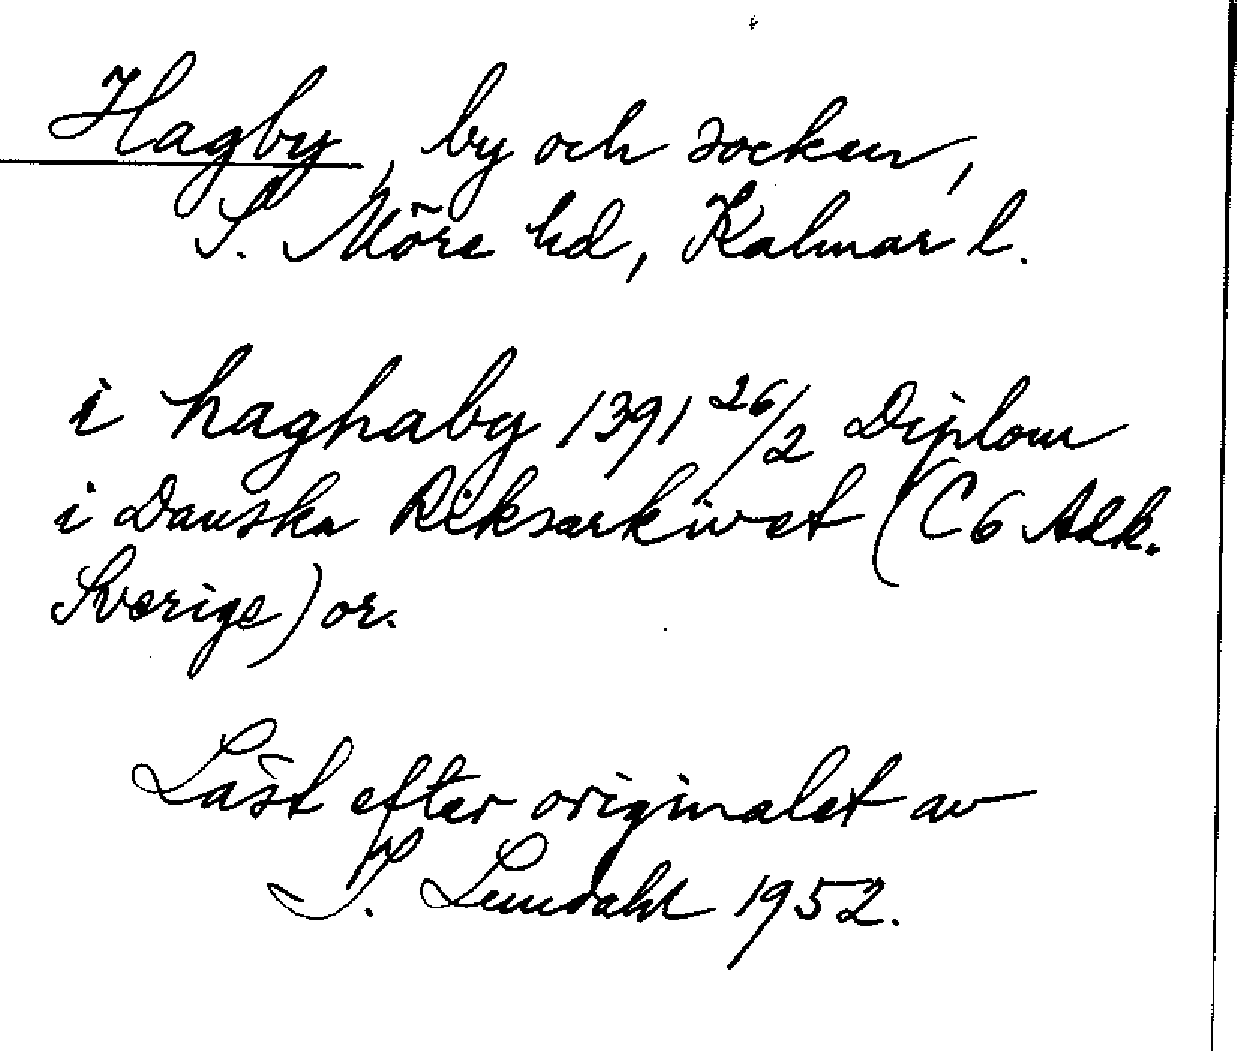 Hagby, by och socken,
S. Möre hd, Kalmar l.
i haghaby 1391 26/2 Diplom
i Danska Riksarkivet (C6 Adk.
Sverige) or.
Läst efter originalet av
I. Lundahl 1952.